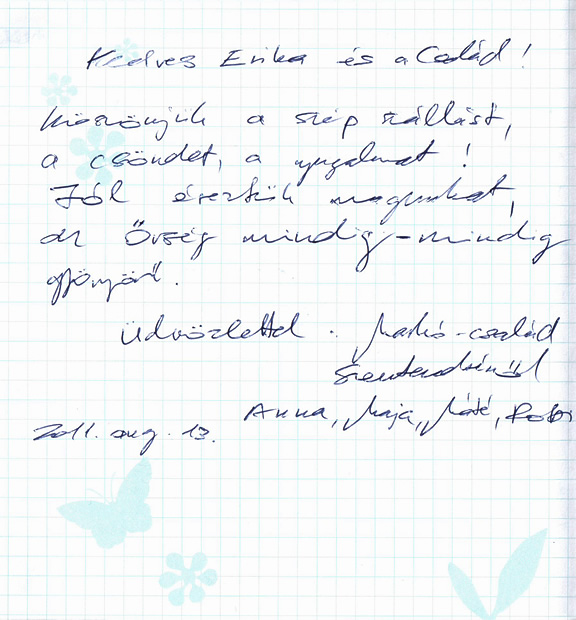 Kedves Erika és a Család!
Köszönjük a szép szállást,
a csöndet, a nyugalmat!
Jól éreztük magunkat,
az Őrség mindig-mindig
gyönyörű.
Üdvözlettel. Markó-család
Szentendréről
Anna, Maja, Máté, Robi
2011. aug. 13.